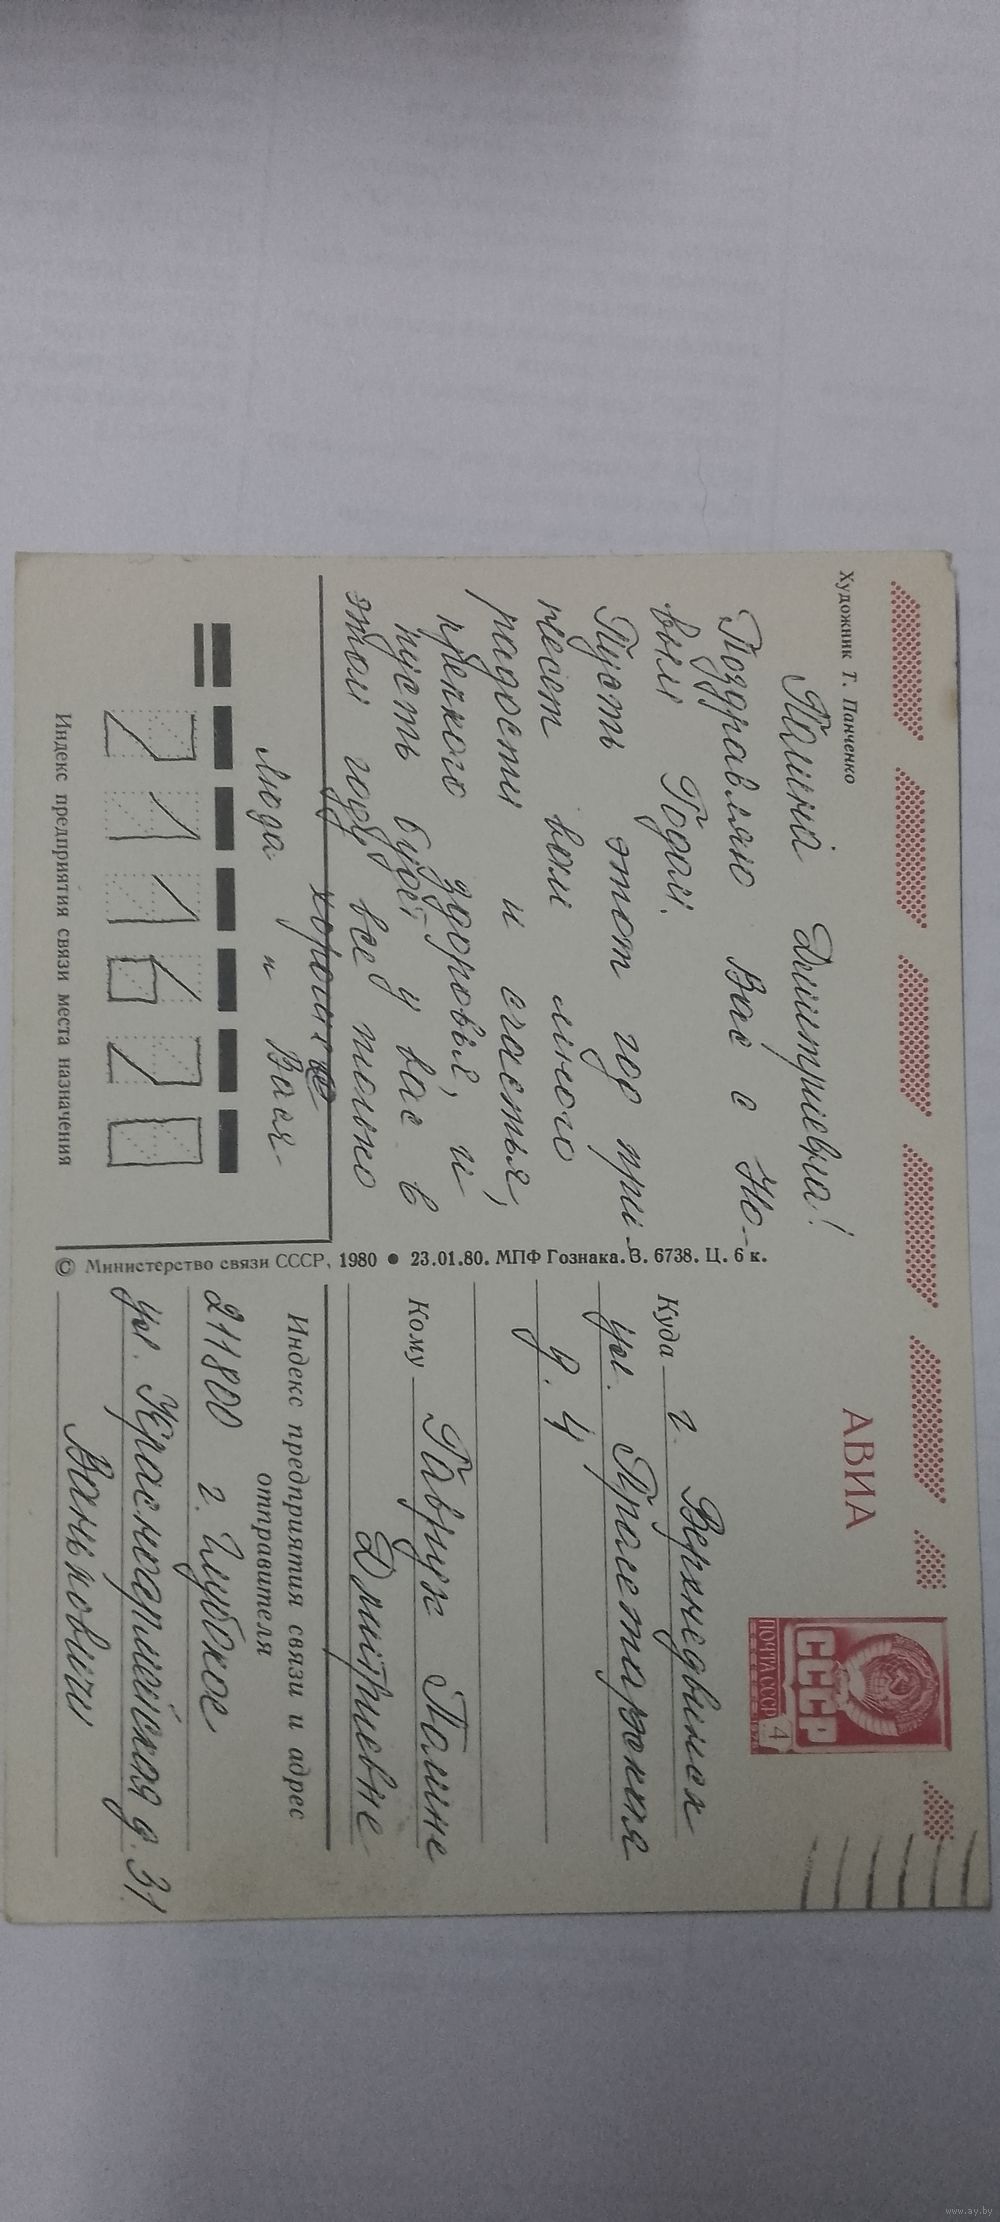 Художник Т. Панченко
АВИА
СССР
ПОЧТА СССР 4
Галина Дмитриевна!
Поздравляю Вас с Но-
вым Годом.
Пусть этот год при-
несет вам много
радости и счастья,
крепкого здоровья, и
пусть будет у вас в
этом году все только
хорошее
Люда и Вася
211630
Индекс предприятия связи места назначения
© Министерство связи СССР, 1980 ● 23.01.80. МПФ Гознака. З. 6738. Ц. 6 к.
Куда г. Верхнедвинск
ул. Пролетарская
д. 4
Кому Гаврук Галине
Дмитриевне
Индекс предприятия связи и адрес
отправителя
211800 г. Глубокое
ул. Красноармейская д. 31
Ваньковичи
www.ay.by